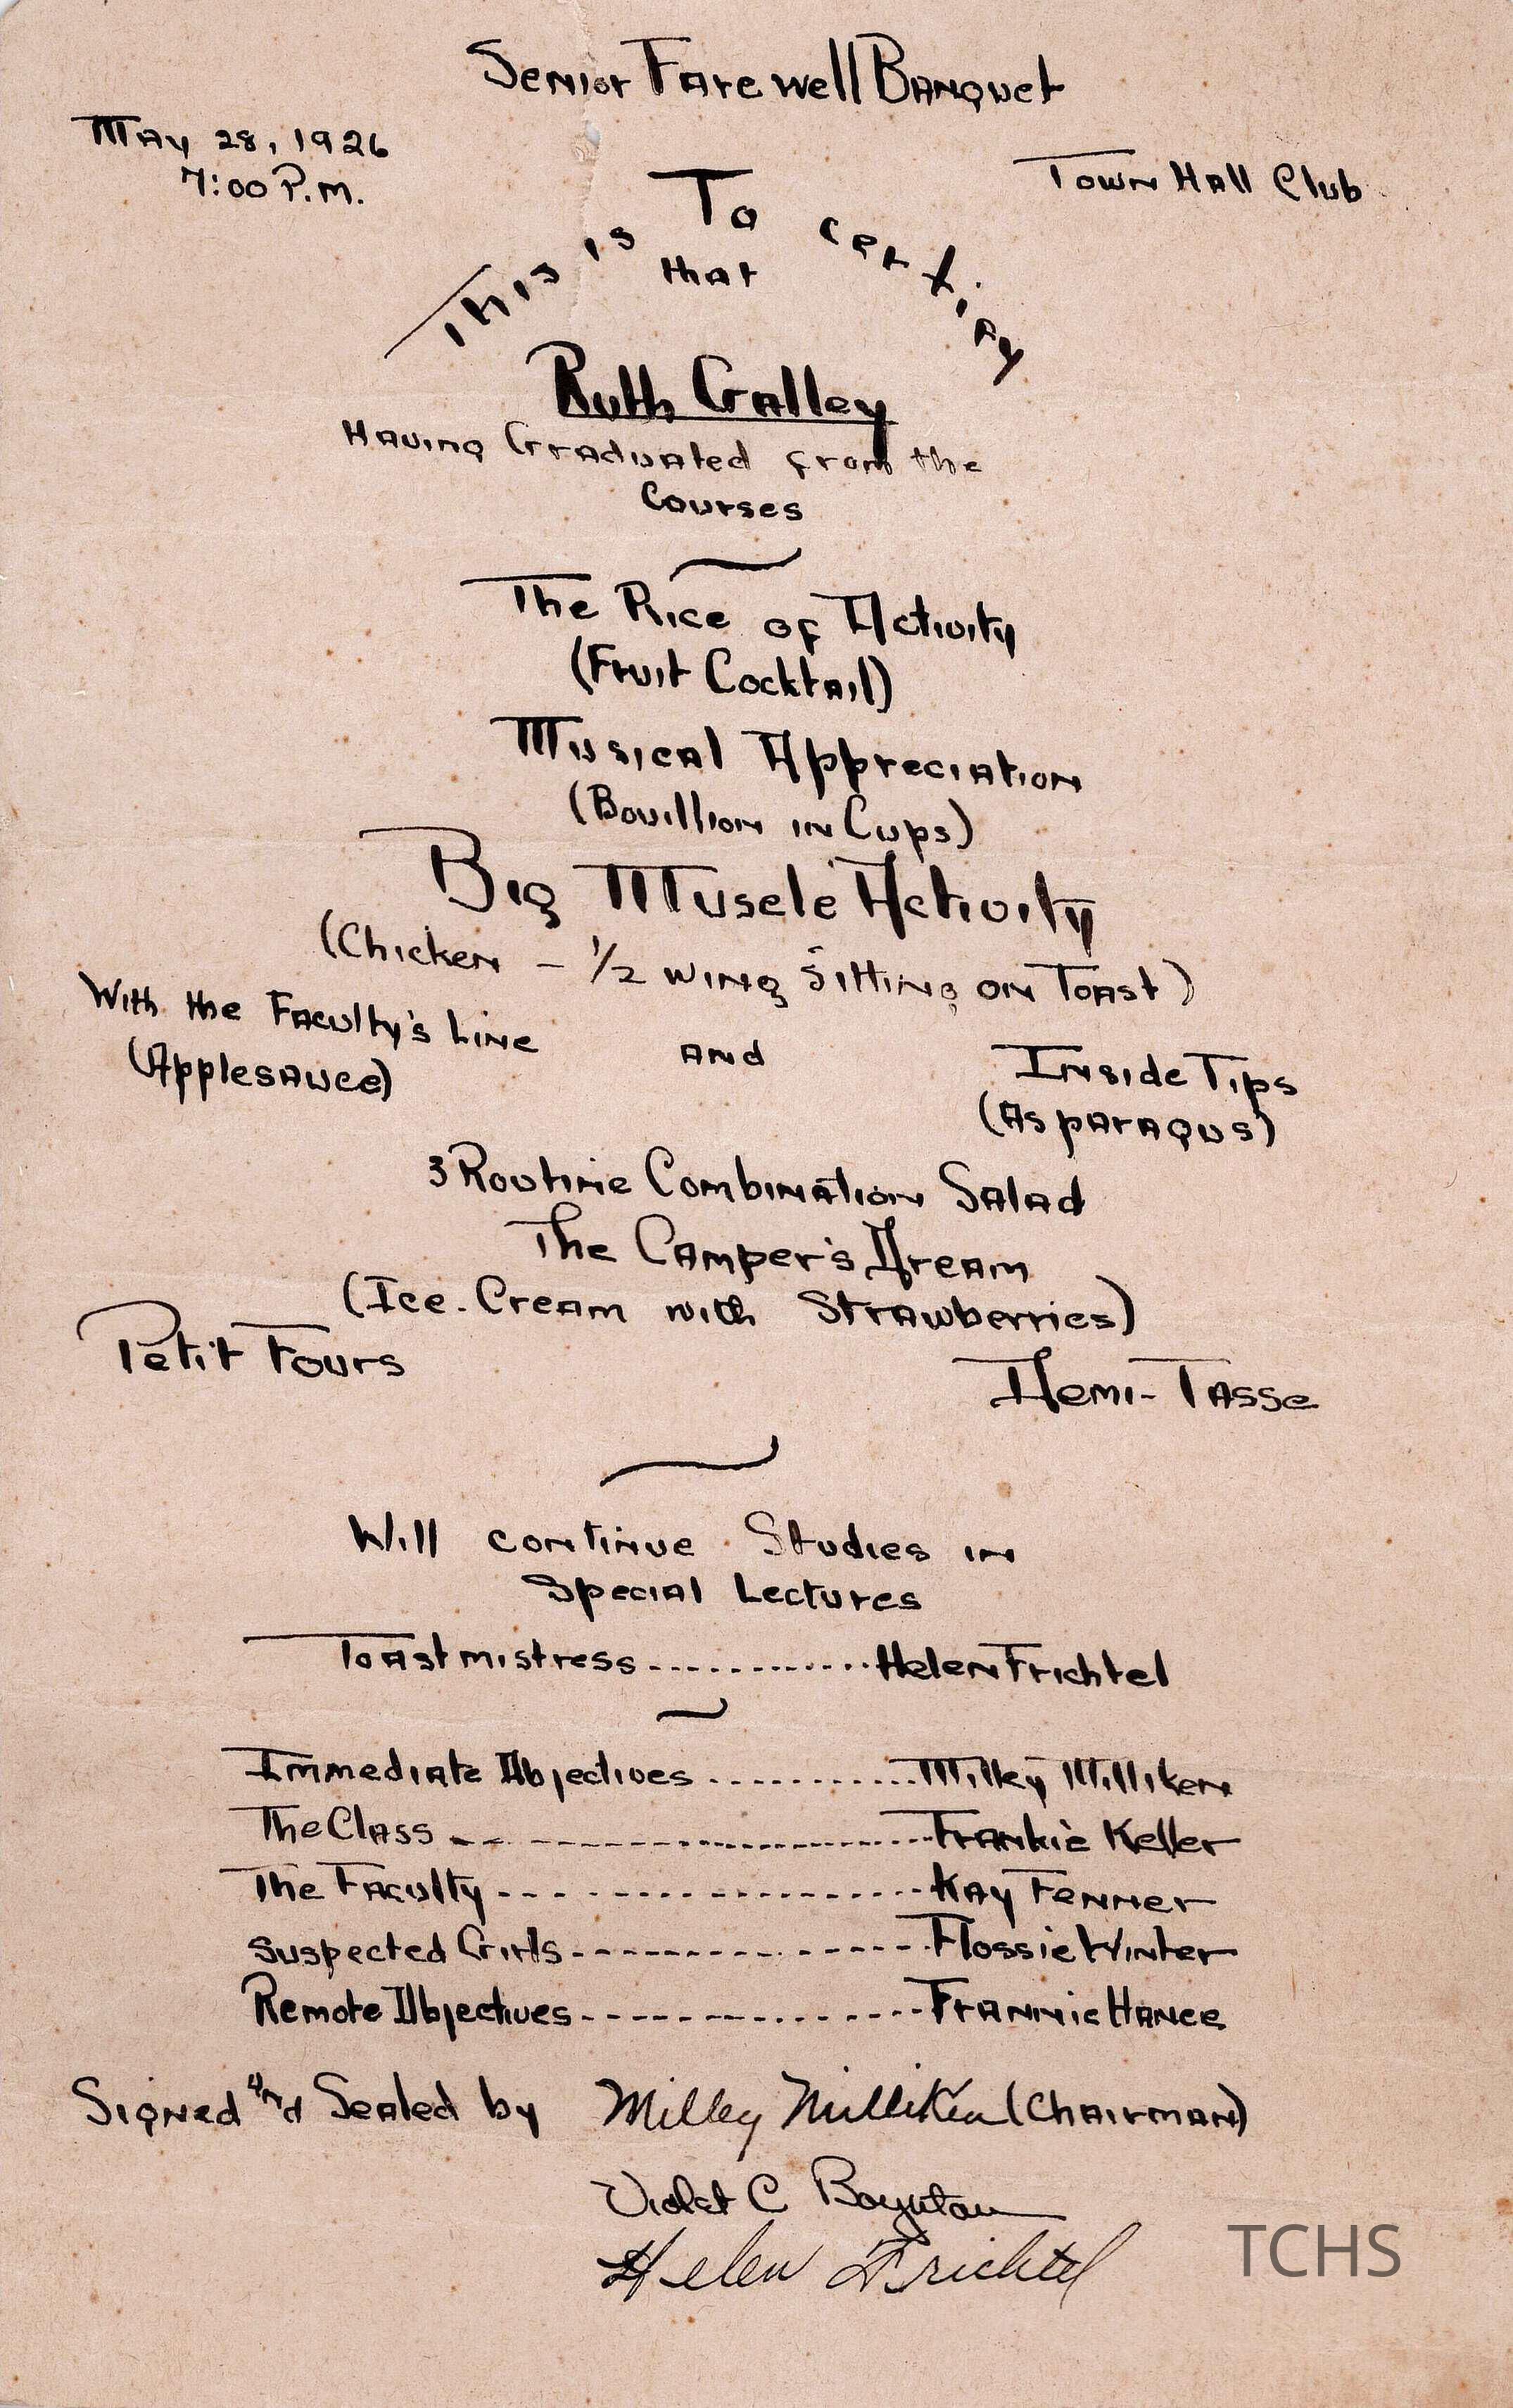 Senior Farewell Banquet
May 28, 1926
7:00 P.M.
Town Hall Club
This is To certify
that
Ruth Galley
Having Graduated from the
Courses
The Rice of Activity
(Fruit Cocktail)
Musical Appreciation
(Bouillion in Cups)
Big Muscle Activity
(Chicken - 1/2 wing sitting on Toast)
With the Faculty's Line
(Applesauce)
and
Inside Tips
(Asparagus)
3 Routine Combination Salad
The Camper's Dream
(Ice-Cream with Strawberries)
Petit Fours
Demi-Tasse
Will continue Studies in
Special Lectures
Toastmistress............Helen Frichtel
Immediate Objectives ............Milkey Milliken
The Class ------------Frankie Keller
The Faculty ------------Kay Fenner
Suspected Girls------------Flossie Winter
Remote Objectives------------Frannie Hance
Signed and Sealed by Milkey Milliken (Chairman)
Violet C Boynton
Helen Frichtel
TCHS